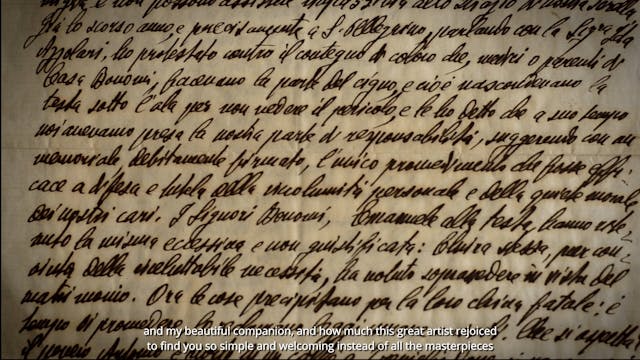 Già lo scorso anno, e precisamente a S. Pellegrino, parlando con la Sig.ra
Azzolari, ho protestato contro il contegno di coloro che, medici o parenti di
Casa Bonomi, facevano la parte del cigno, e cioè nascondevano la
testa sotto l'ala per non vedere il pericolo, e le ho detto che a suo tempo
noi avevamo presa la nostra parte di responsabilità, suggerendo con un
memoriale, debitamente firmato, l'unico provvedimento che fosse effi-
cace a difesa e tutela della incolumità personale e della quiete morale
dei nostri cari. I Signori Bonomi, Emanuele alla testa, hanno rite-
nuto la misura eccessiva e non giustificata: Elvira stessa, pur con-
vinta della ineluttabile necessità, ha voluto soprassedere in vista del
matrimonio. Ora le cose precipitano per la loro china fatale: è
tempo di provvedere
Che si aspetta
and my beautiful companion, and how much this great artist rejoiced
to find you so simple and welcoming instead of all the masterpieces